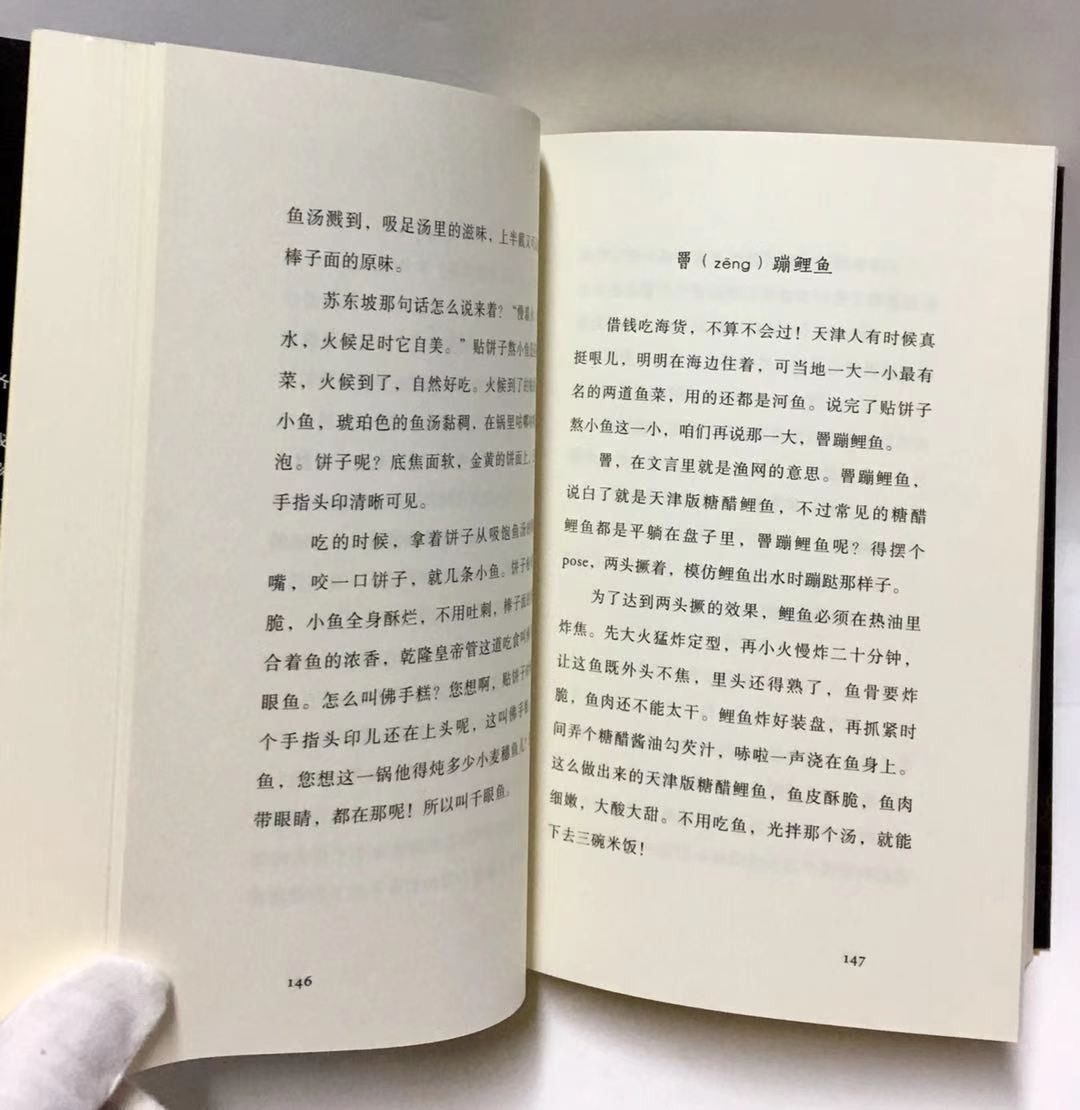 鱼汤溅到，吸足汤里的滋味，上半截又可
棒子面的原味。
苏东坡那句话怎么说来着？“慢着
水，火候足时它自美。”贴饼子熬小鱼
菜，火候到了，自然好吃。火候到了
小鱼，琥珀色的鱼汤黏稠，在锅里咕嘟
泡。饼子呢？底焦面软，金黄的饼面上，
手指头印清晰可见。
吃的时候，拿着饼子从吸饱鱼汤
嘴，咬一口饼子，就几条小鱼。饼子
脆，小鱼全身酥烂，不用吐刺，棒子面
合着鱼的浓香，乾隆皇帝管这道吃食叫
眼鱼。怎么叫佛手糕？您想啊，贴饼子
个手指头印儿还在上头呢，这叫佛手
鱼，您想这一锅他得炖多少小麦穗鱼儿？
带眼睛，都在那呢！所以叫千眼鱼。
146
罾（zēng）蹦鲤鱼
借钱吃海货，不算不会过！天津人有时候真
挺哏儿，明明在海边住着，可当地一大一小最有
名的两道鱼菜，用的还都是河鱼。说完了贴饼子
熬小鱼这一小，咱们再说那一大，罾蹦鲤鱼。
罾，在文言里就是渔网的意思。罾蹦鲤鱼，
说白了就是天津版糖醋鲤鱼，不过常见的糖醋
鲤鱼都是平躺在盘子里，罾蹦鲤鱼呢？得摆个
pose，两头撅着，模仿鲤鱼出水时蹦跶那样子。
为了达到两头撅的效果，鲤鱼必须在热油里
炸焦。先大火猛炸定型，再小火慢炸二十分钟，
让这鱼既外头不焦，里头还得熟了，鱼骨要炸
脆，鱼肉还不能太干。鲤鱼炸好装盘，再抓紧时
间弄个糖醋酱油勾芡汁，哧啦一声浇在鱼身上。
这么做出来的天津版糖醋鲤鱼，鱼皮酥脆，鱼肉
细嫩，大酸大甜。不用吃鱼，光拌那个汤，就能
下去三碗米饭！
147